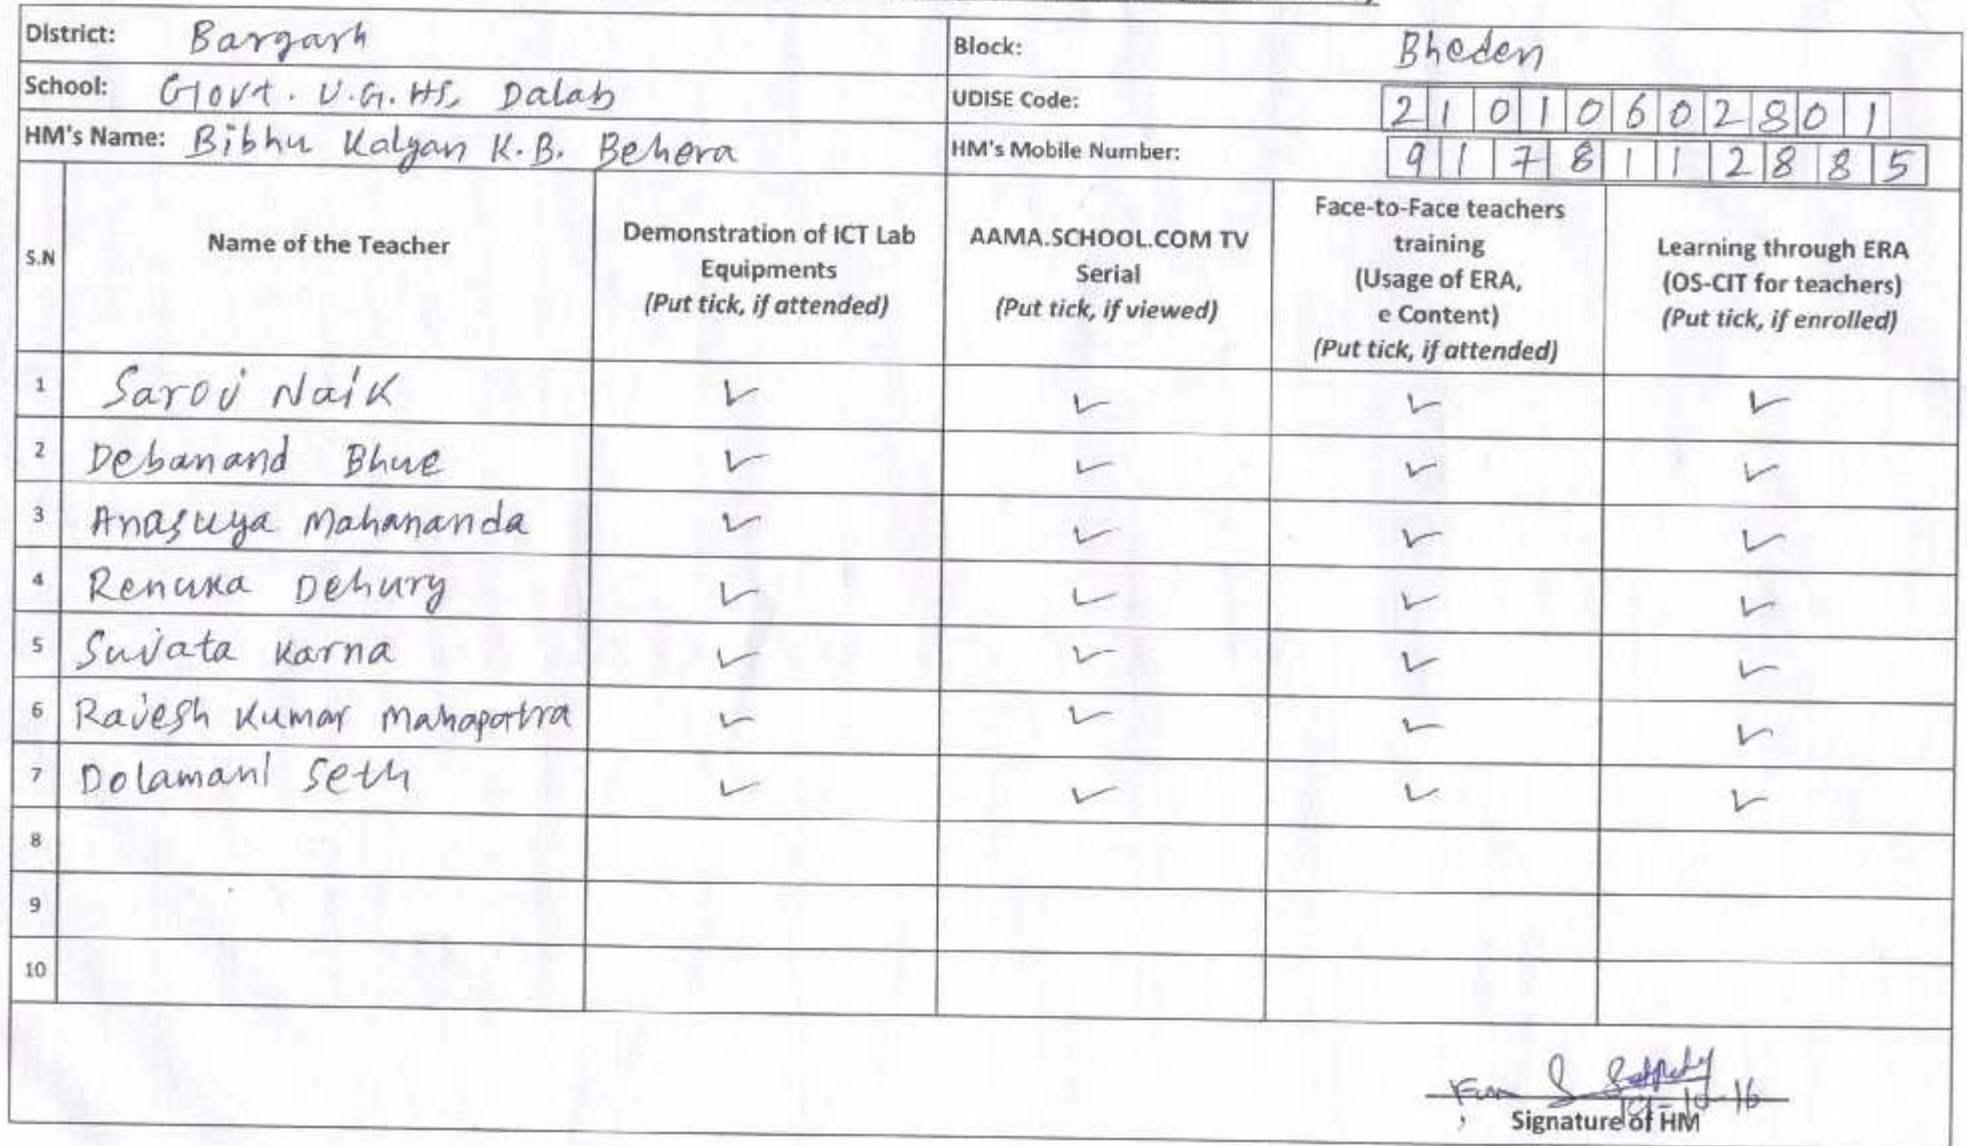 District: Bargarh Block: Bheden
School: Govt. U.G. HS, Dalab UDISE Code: 21010602801
HM's Name: Bibhu Kalyan K.B. Behera HM's Mobile Number: 9178112885
S.N Name of the Teacher Demonstration of ICT Lab Equipments (Put tick, if attended) AAMA.SCHOOL.COM TV Serial (Put tick, if viewed) Face-to-Face teachers training (Usage of ERA, e Content) (Put tick, if attended) Learning through ERA (OS-CIT for teachers) (Put tick, if enrolled)
1 Saroj Naik ✓ ✓ ✓ ✓
2 Debanand Bhue ✓ ✓ ✓ ✓
3 Anasuya Mahananda ✓ ✓ ✓ ✓
4 Renuka Dehury ✓ ✓ ✓ ✓
5 Sujata Karna ✓ ✓ ✓ ✓
6 Rajesh Kumar Mahapatra ✓ ✓ ✓ ✓
7 Dolamani Seth ✓ ✓ ✓ ✓
8
9
10
Signature of HM